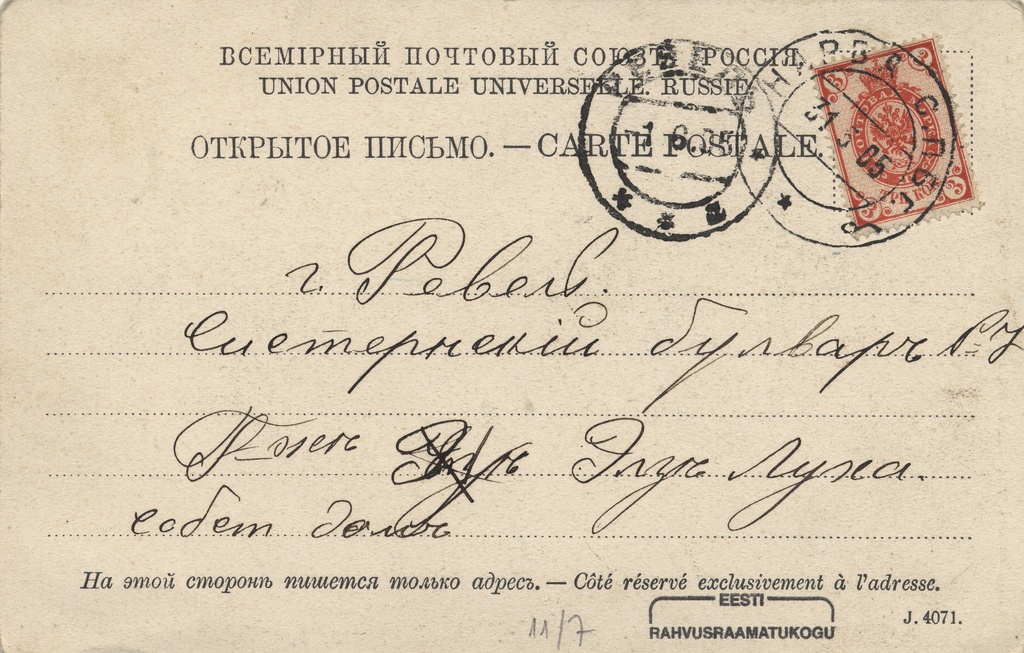 ВСЕМІРНЫЙ ПОЧТОВЫЙ СОЮЗЪ. РОССІЯ.
UNION POSTALE UNIVERSELLE. RUSSIE.
ОТКРЫТОЕ ПИСЬМО. — CARTE POSTALE.
1 6 05
2
31 5 05
г. Ревель.
Систернскій бульваръ
Элук Луха.
собст домъ
На этой сторонѣ пишется только адресъ. — Côté réservé exclusivement à l'adresse.
EESTI
RAHVUSRAAMATUKOGU
J. 4071.
11/7